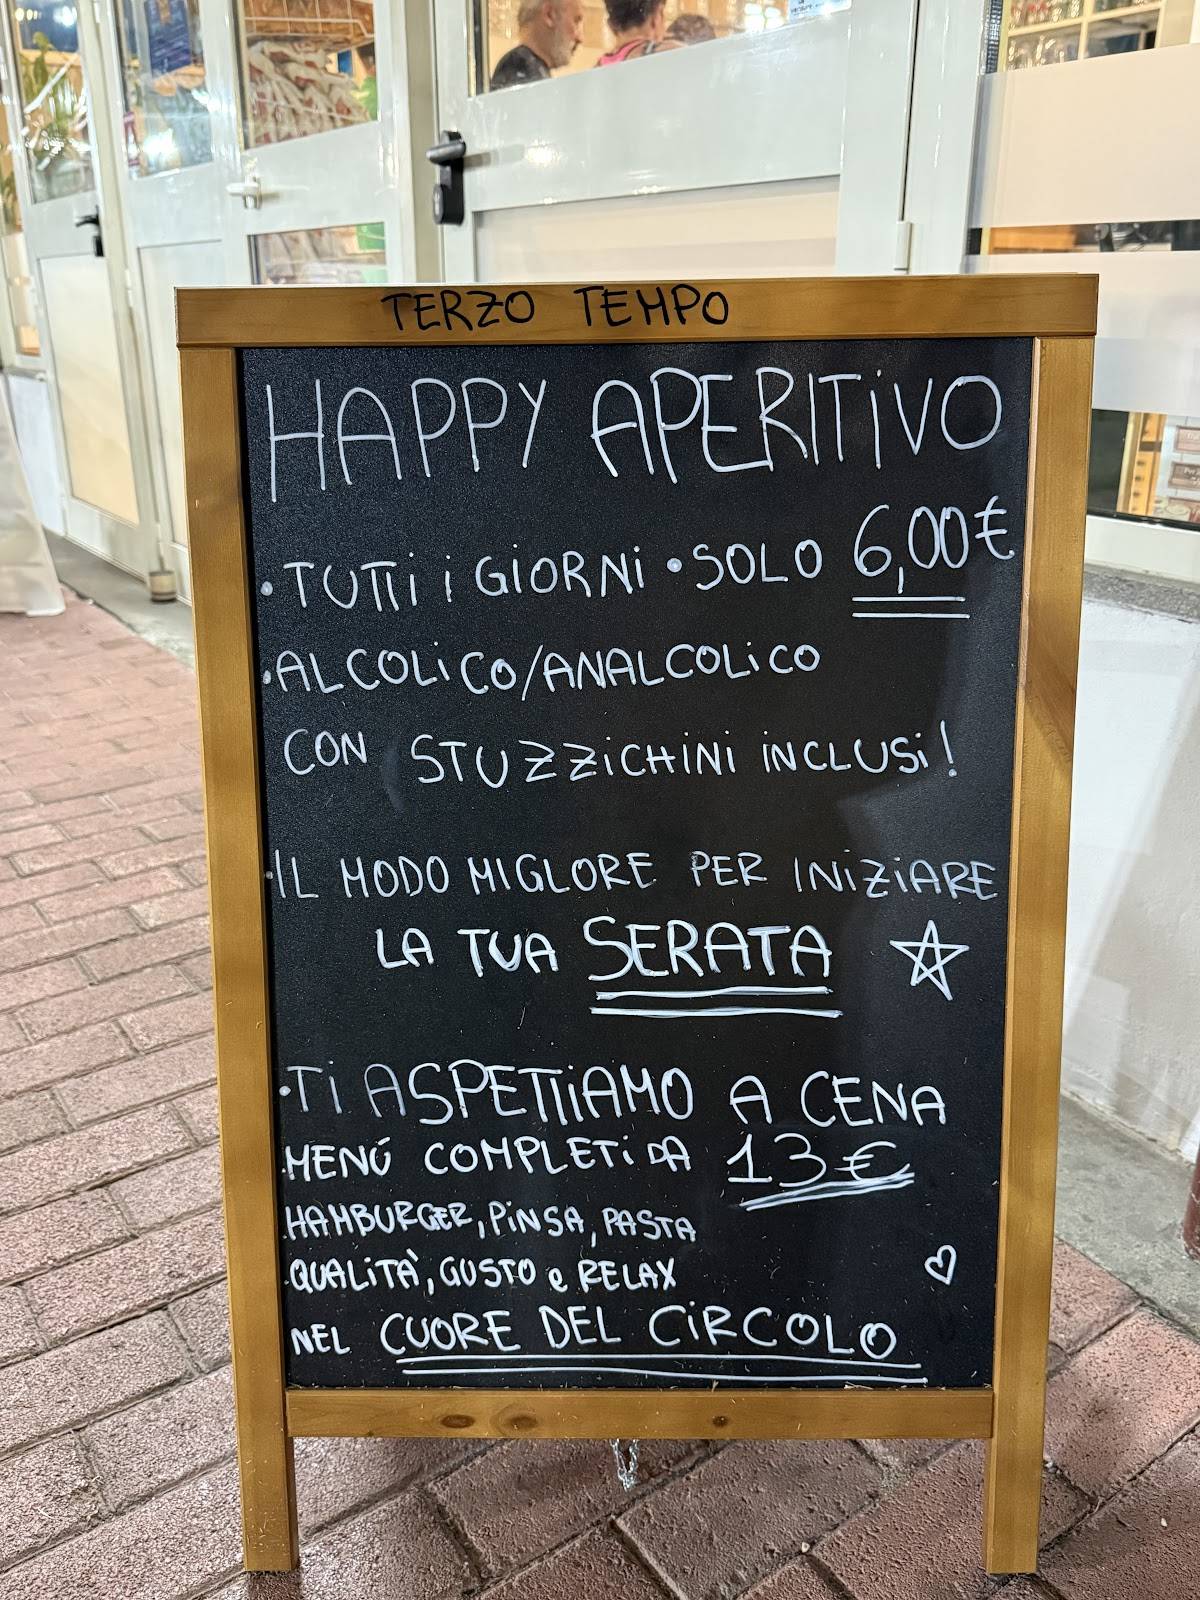 TERZO TEMPO
HAPPY APERITIVO
• TUTTI I GIORNI • SOLO 6,00€
• ALCOLICO/ANALCOLICO
CON STUZZICHINI INCLUSI!
• IL MODO MIGLORE PER INIZIARE
LA TUA SERATA
• TI ASPETTIAMO A CENA
• MENÚ COMPLETI DA 13€
• HAMBURGER, PINSA, PASTA
• QUALITÀ, GUSTO e RELAX
NEL CUORE DEL CIRCOLO